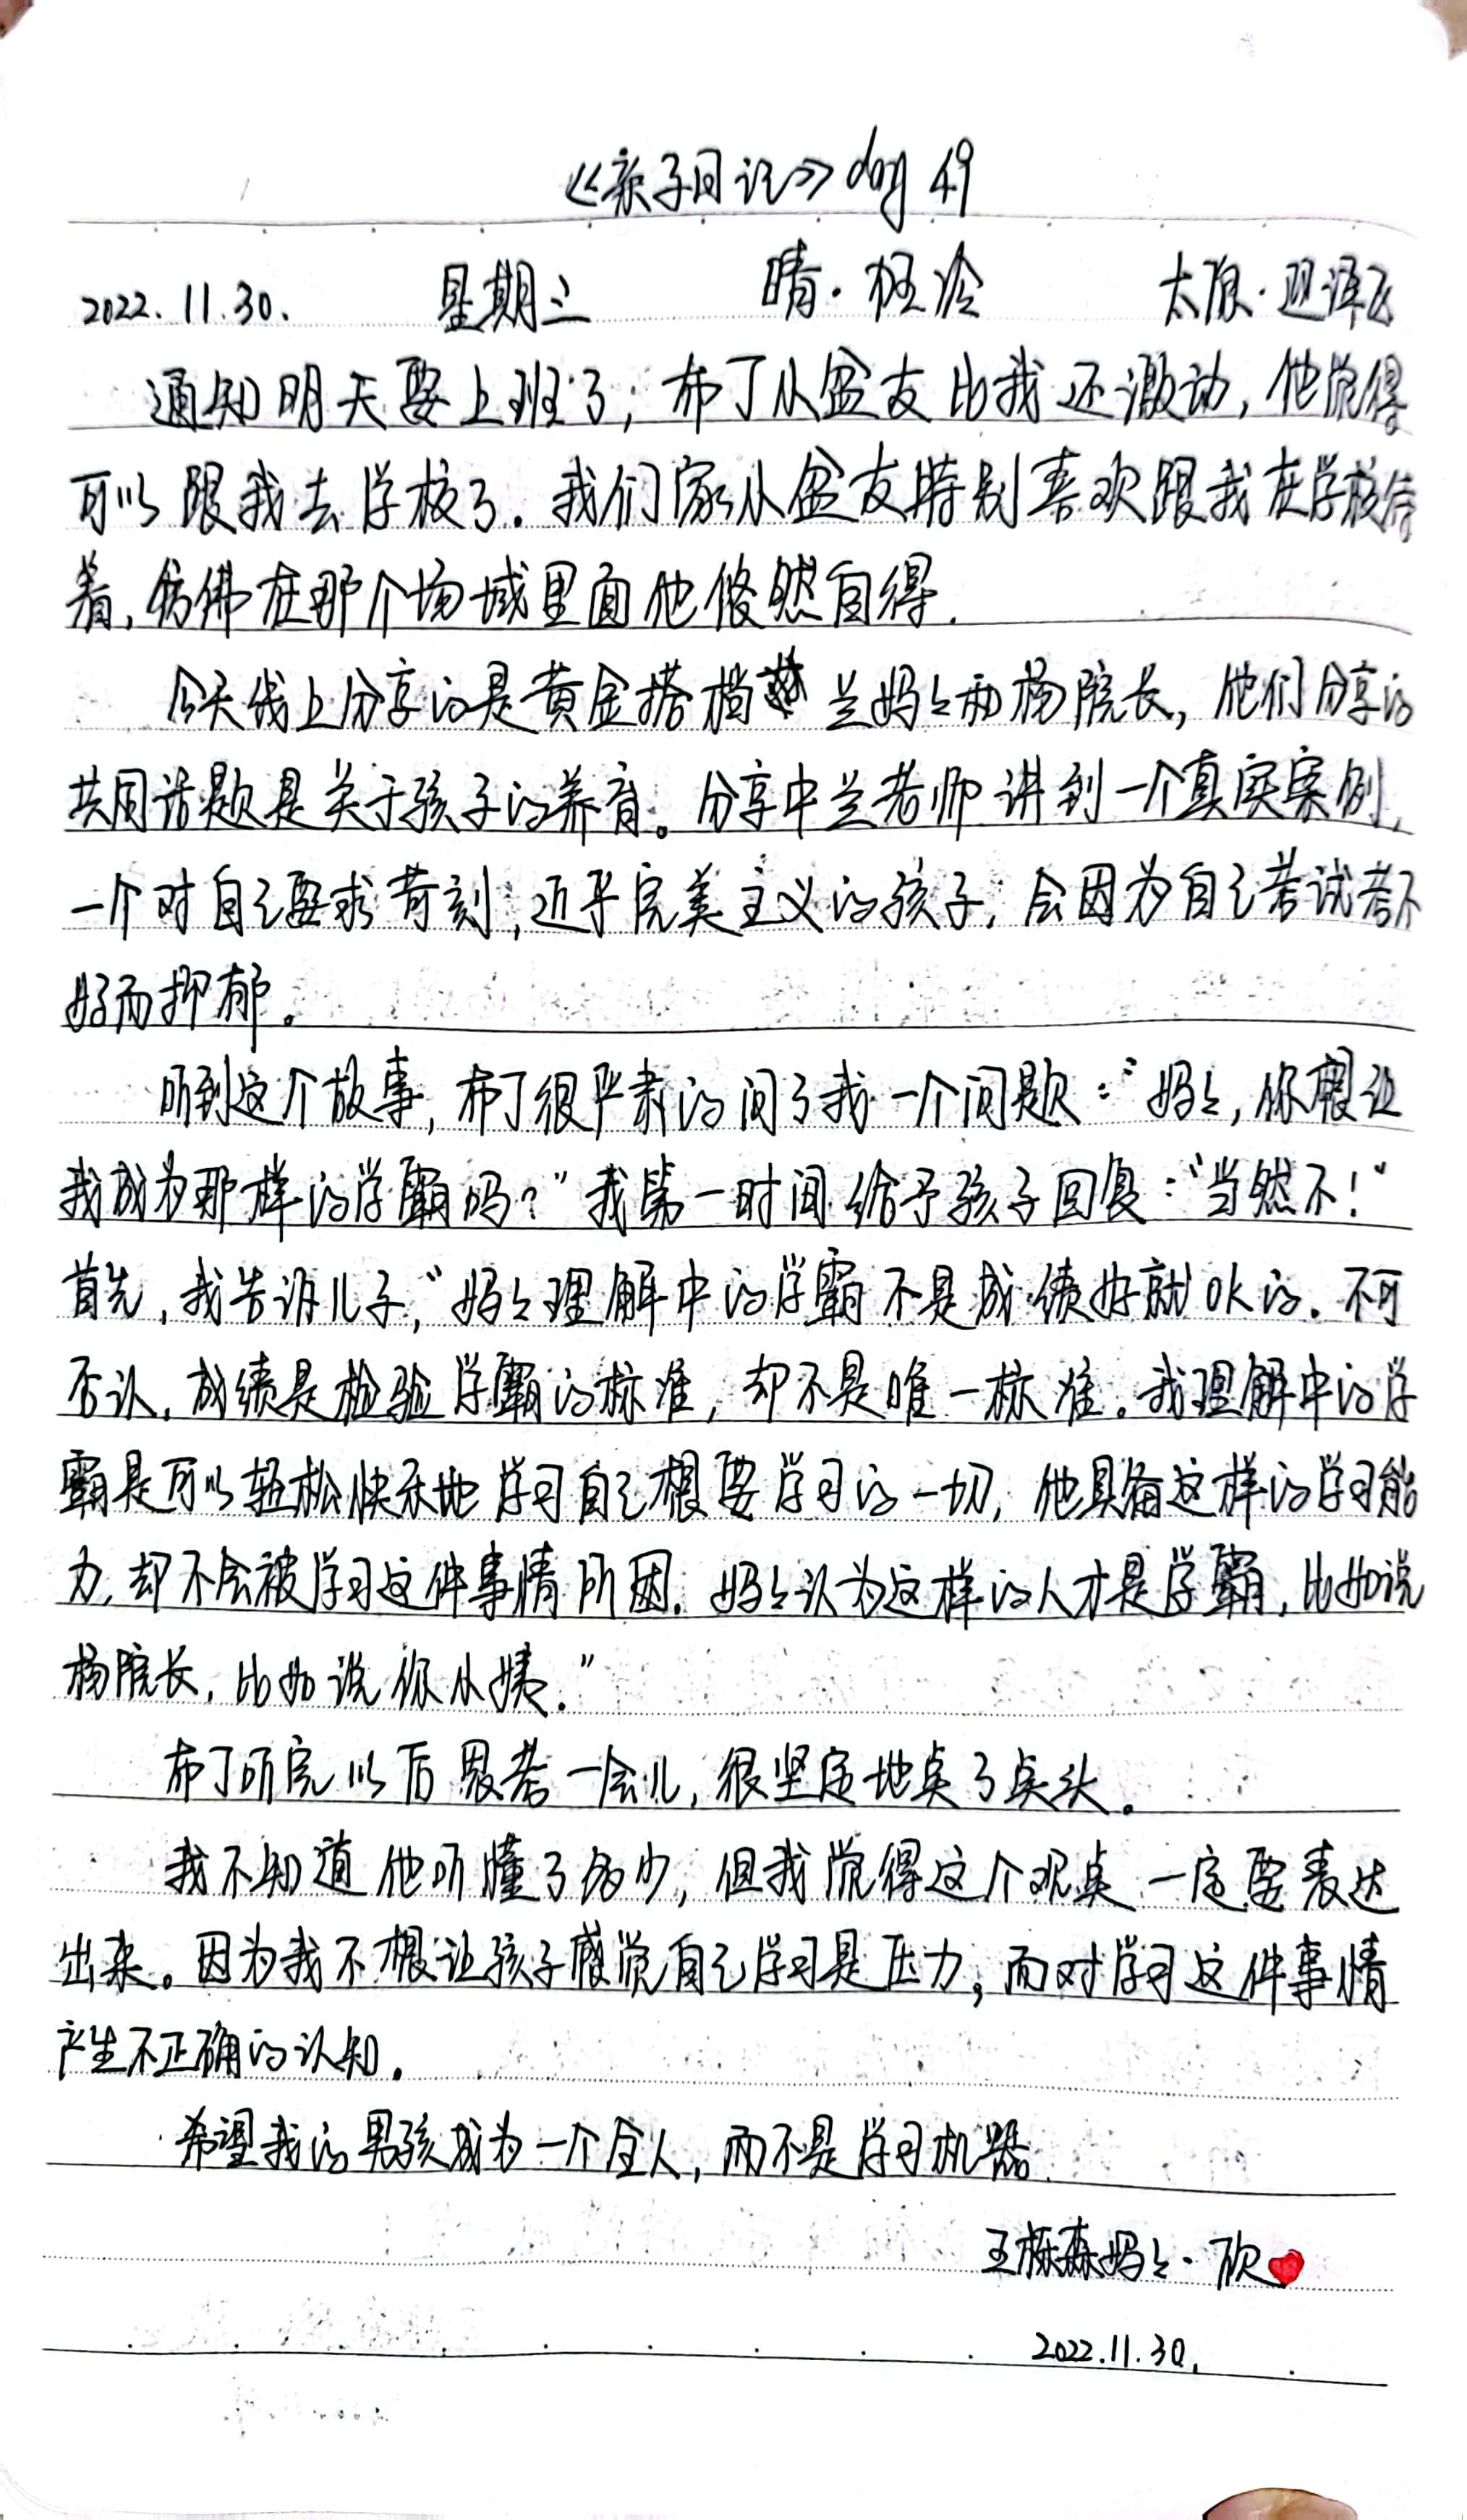 《亲子日记》day 49
2022.11.30. 星期三 晴·极冷 太原·迎泽区
通知明天要上班了，布丁小盆友比我还激动，他觉得
可以跟我去学校了。我们家小盆友特别喜欢跟我在学校待
着，仿佛在那个场域里面他悠然自得.
今天线上分享的是黄金搭档 兰妈妈和杨院长，他们分享的
共同话题是关于孩子的养育。分享中兰老师讲到一个真实案例，
一个对自己要求苛刻，近乎完美主义的孩子，会因为自己考试考不
好而抑郁。
听到这个故事，布丁很严肃的问了我一个问题：“妈妈，你想让
我成为那样的学霸吗？”我第一时间给予孩子回复：“当然不！”
首先，我告诉儿子，“妈妈理解中的学霸不是成绩好就OK的. 不可
否认，成绩是检验学霸的标准，却不是唯一标准。我理解中的学
霸是可以轻松快乐地学习自己想要学习的一切，他具备这样的学习能
力，却不会被学习这件事情所困. 妈妈认为这样的人才是学霸，比如说
杨院长，比如说你小姨.”
布丁听完以后思考一会儿，很坚定地点了点头。
我不知道他听懂了多少，但我觉得这个观点一定要表达
出来。因为我不想让孩子感觉自己学习是压力，而对学习这件事情
产生不正确的认知.
希望我的男孩成为一个全人，而不是学习机器.
王栎森妈妈·欣
2022.11.30.